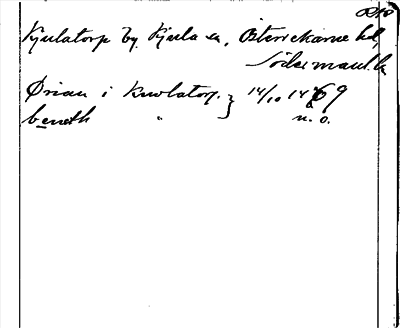 RAÖ
Kjulatorp by, Kjula sn, Österrekarne hd,
Södermanl. l.
Ørian i Kwlatorp } 14/10 1469
benedh " n. o.